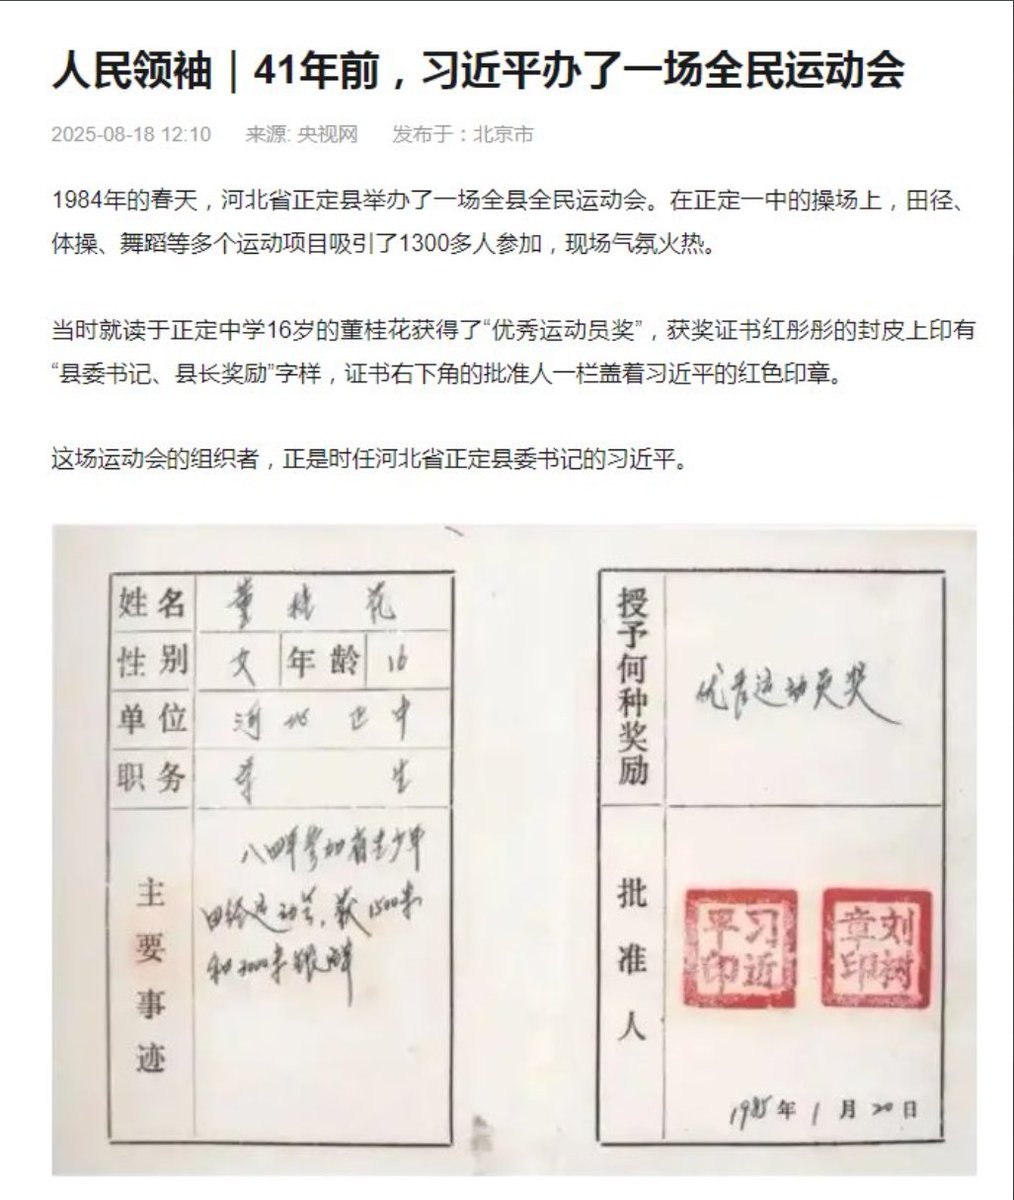 人民领袖｜41年前，习近平办了一场全民运动会
2025-08-18 12:10 来源: 央视网 发布于：北京市
1984年的春天，河北省正定县举办了一场全县全民运动会。在正定一中的操场上，田径、
体操、舞蹈等多个运动项目吸引了1300多人参加，现场气氛火热。
当时就读于正定中学16岁的董桂花获得了“优秀运动员奖”，获奖证书红彤彤的封皮上印有
“县委书记、县长奖励”字样，证书右下角的批准人一栏盖着习近平的红色印章。
这场运动会的组织者，正是时任河北省正定县委书记的习近平。
姓名 董桂花
性别 女 年龄 16
单位 河北正中
职务 学生
主要事迹
八四年参加省青少年
田径运动会，获1500米
和3000米银牌
授予何种奖励
优秀运动员奖
批准人
习近平印
刘树章印
1985年1月20日